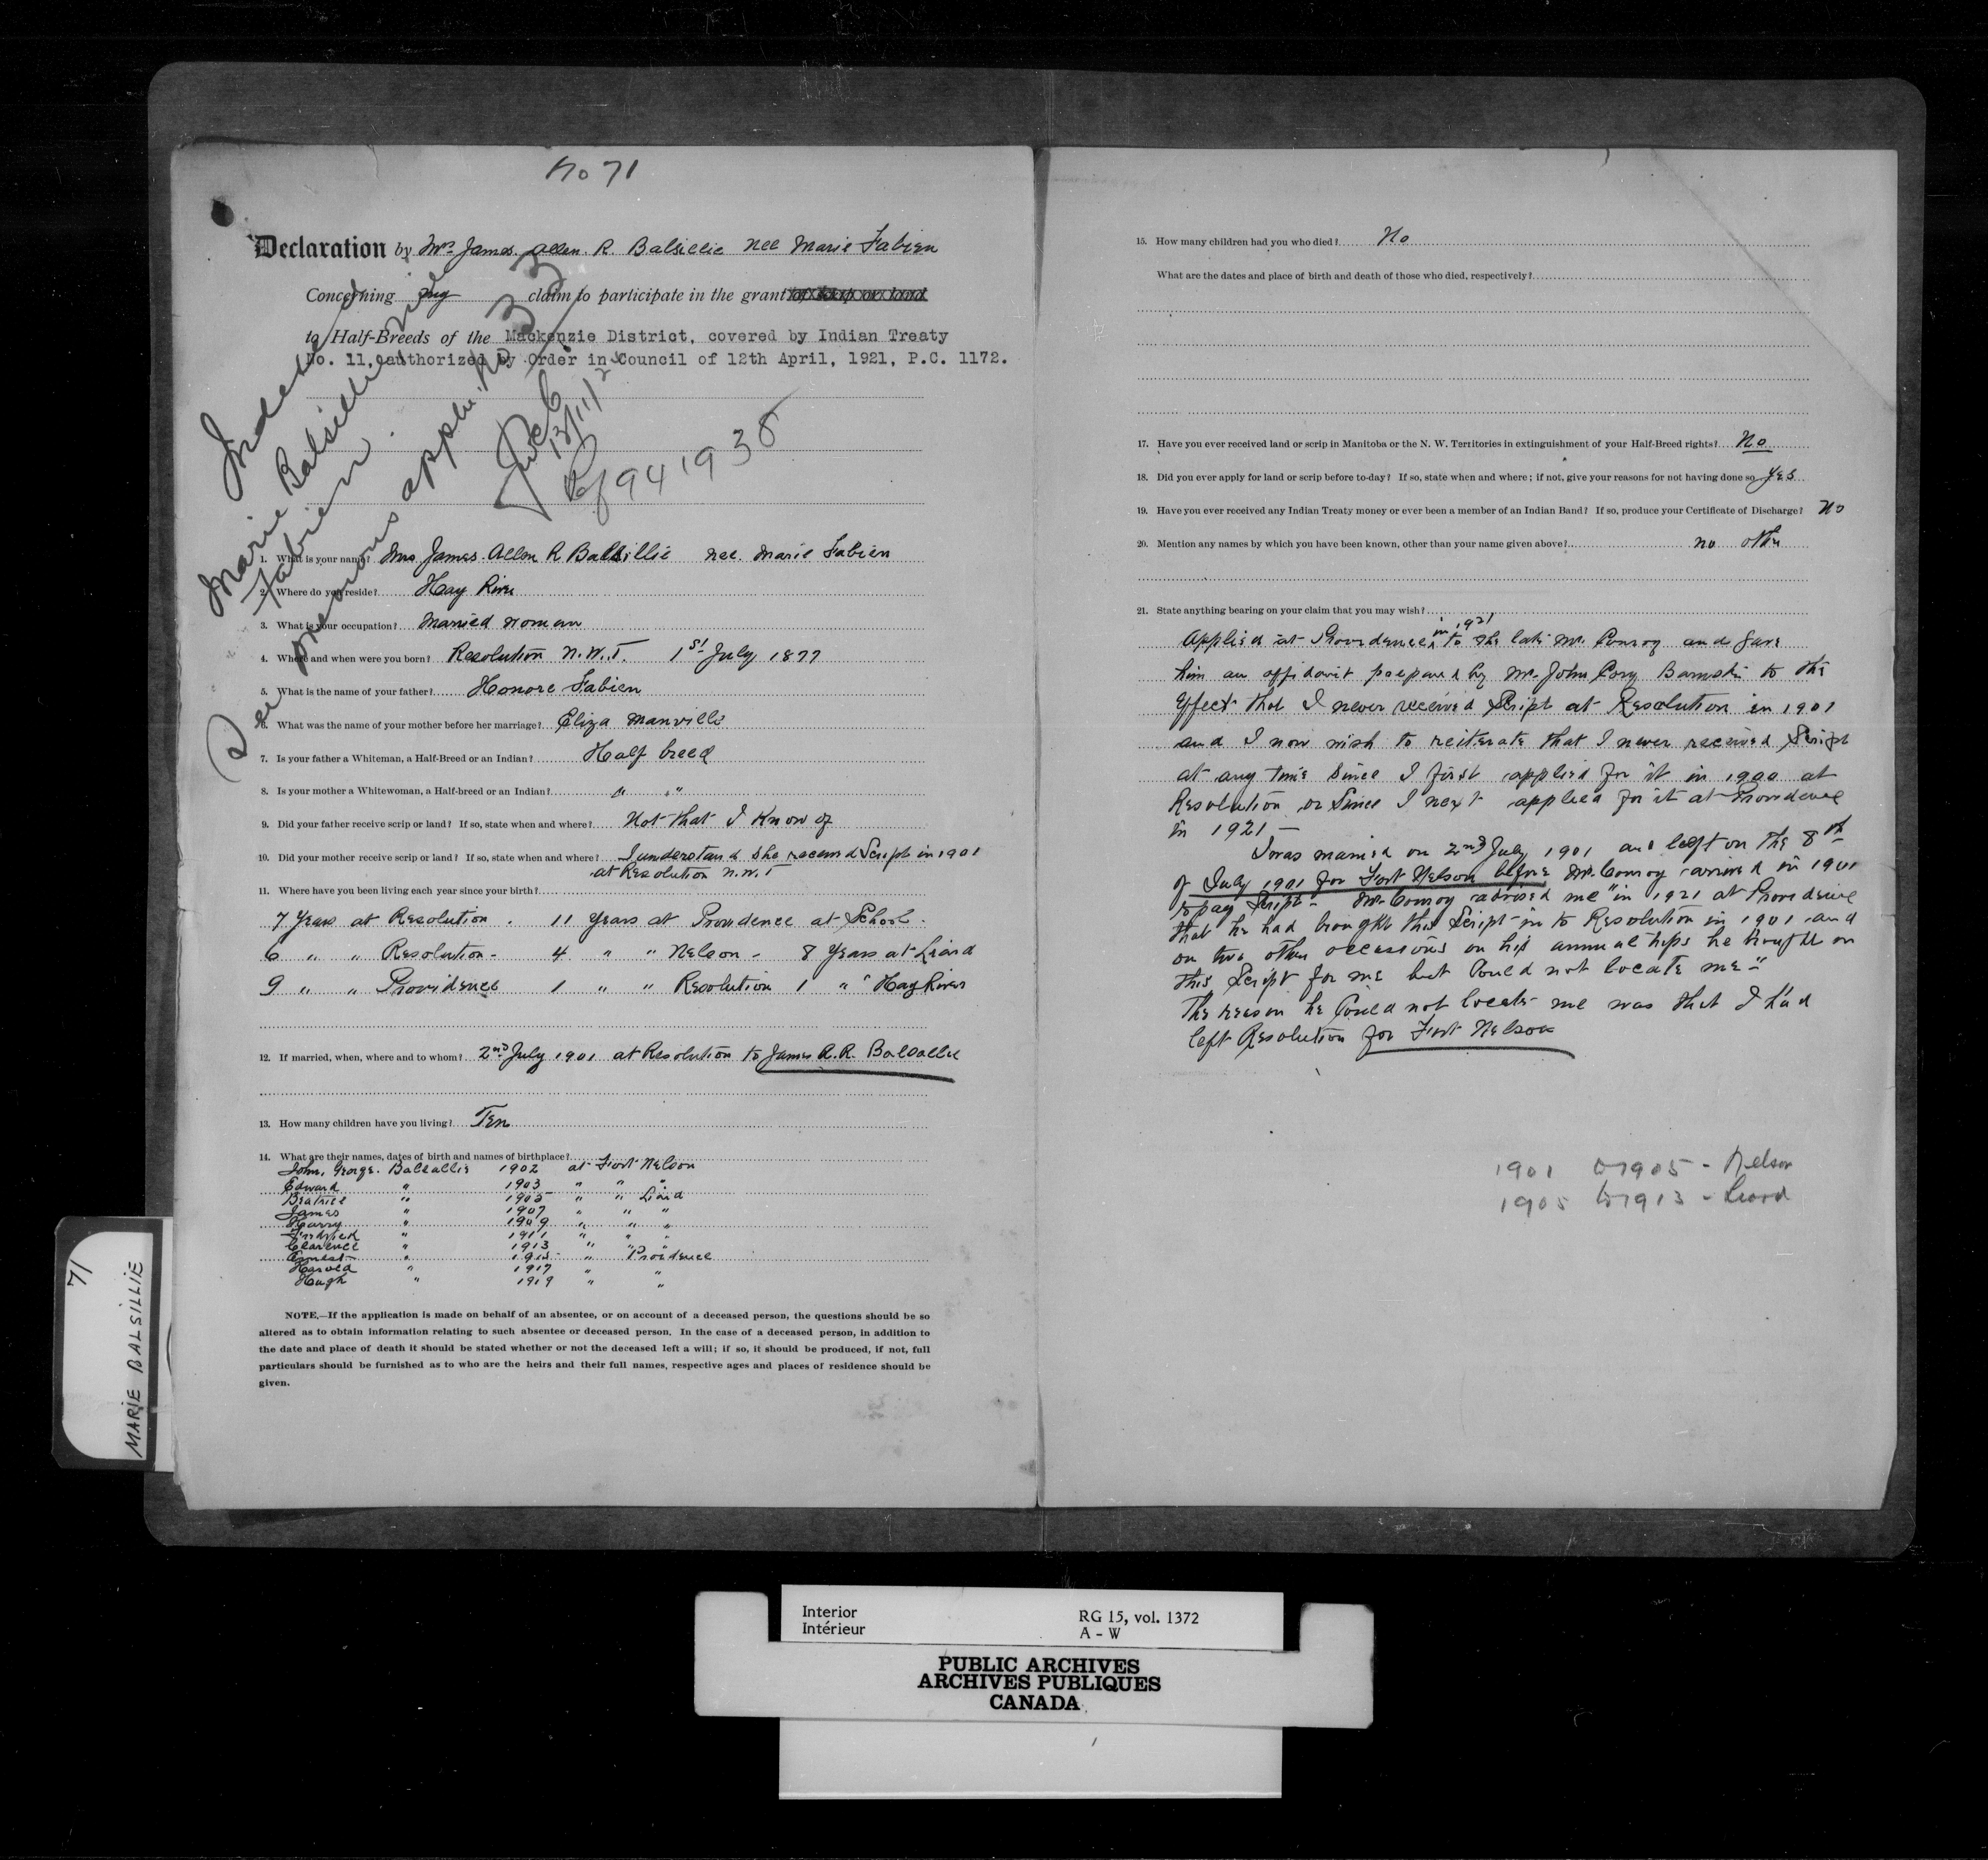 No 71
Declaration by Mrs James Allen R. Balsillie nee Marie Fabien
Concerning my claim to participate in the grant of scrip or land
to Half-Breeds of the Mackenzie District, covered by Indian Treaty
No. 11, authorized by Order in Council of 12th April, 1921, P.C. 1172.
Indexed
Marie Balsillie née
Fabien
See previous applic. No 33
13/11/2
Rf 941938
1. What is your name? Mrs James Allen R Balsillie nee. Marie Fabien
2. Where do you reside? Hay River
3. What is your occupation? Married woman
4. Where and when were you born? Resolution N.W.T. 1st July 1877
5. What is the name of your father? Honore Fabien
6. What was the name of your mother before her marriage? Eliza Manville
7. Is your father a Whiteman, a Half-Breed or an Indian? Half breed
8. Is your mother a Whitewoman, a Half-breed or an Indian? " "
9. Did your father receive scrip or land? If so, state when and where? Not that I know of
10. Did your mother receive scrip or land? If so, state when and where? I understand she received Script in 1901
at Resolution N.W.T
11. Where have you been living each year since your birth?
7 Years at Resolution. 11 Years at Providence at School.
6 " " Resolution - 4 " " Nelson - 8 Years at Liard
9 " " Providence 1 " " Resolution 1 " " Hay River
12. If married, when, where and to whom? 2nd July 1901 at Resolution to James A.R. Balsallie
13. How many children have you living? Ten
14. What are their names, dates of birth and names of birthplace?
John, George. Balsallie 1902 at Fort Nelson
Edward " 1903 " " "
Beatrice " 1905 " " Liard
James " 1907 " " "
Harry " 1909 " " "
Fredrick " 1911 " " "
Clarence " 1913 " " "
Ernest " 1915 " Providence
Harold " 1917 " "
Hugh " 1919 " "
NOTE.—If the application is made on behalf of an absentee, or on account of a deceased person, the questions should be so
altered as to obtain information relating to such absentee or deceased person. In the case of a deceased person, in addition to
the date and place of death it should be stated whether or not the deceased left a will; if so, it should be produced, if not, full
particulars should be furnished as to who are the heirs and their full names, respective ages and places of residence should be
given.
71
MARIE BALSILLIE
15. How many children had you who died? No
What are the dates and place of birth and death of those who died, respectively?
17. Have you ever received land or scrip in Manitoba or the N. W. Territories in extinguishment of your Half-Breed rights? No
18. Did you ever apply for land or scrip before to-day? If so, state when and where; if not, give your reasons for not having done so Yes
19. Have you ever received any Indian Treaty money or ever been a member of an Indian Band? If so, produce your Certificate of Discharge? No
20. Mention any names by which you have been known, other than your name given above? no other
21. State anything bearing on your claim that you may wish?
Applied at Providence in 1921 to the late Mr. Conroy and gave
him an affidavit prepared by Mr. John Cory to the
effect that I never received Script at Resolution in 1901
and I now wish to reiterate that I never received Script
at any time since I first applied for it in 1900 at
Resolution or Since I next applied for it at Providence
in 1921 -
I was married on 2nd July 1901 and left on the 8th
of July 1901 for Fort Nelson before Mr. Conroy arrived in 1901
to pay Script - Mr. Conroy advised me "in 1921 at Providence
that he had brought this Script in to Resolution in 1901 and
on two other occassions on his annual trips he brought in
this Script for me but Could not locate me"
The reason he Could not locate me was that I had
left Resolution for Fort Nelson
1901 to 1905 - Nelson
1905 to 1913 - Liard
Interior
Intérieur
RG 15, vol. 1372
A - W
PUBLIC ARCHIVES
ARCHIVES PUBLIQUES
CANADA